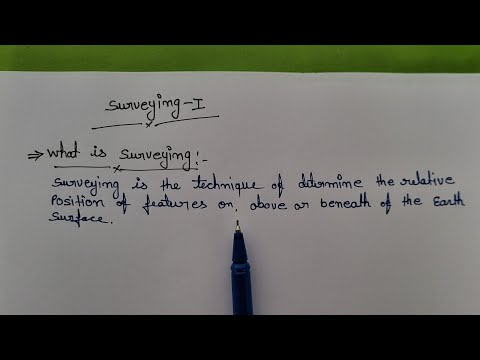 Surveying-I
⇒ What is surveying:-
Surveying is the technique of determine the relative
Position of features on, above or beneath of the Earth
Surface.